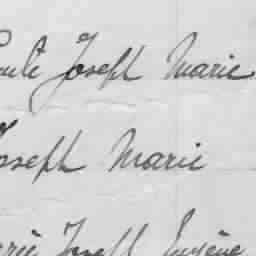 Joseph Marie
Joseph Marie
Joseph Eugène